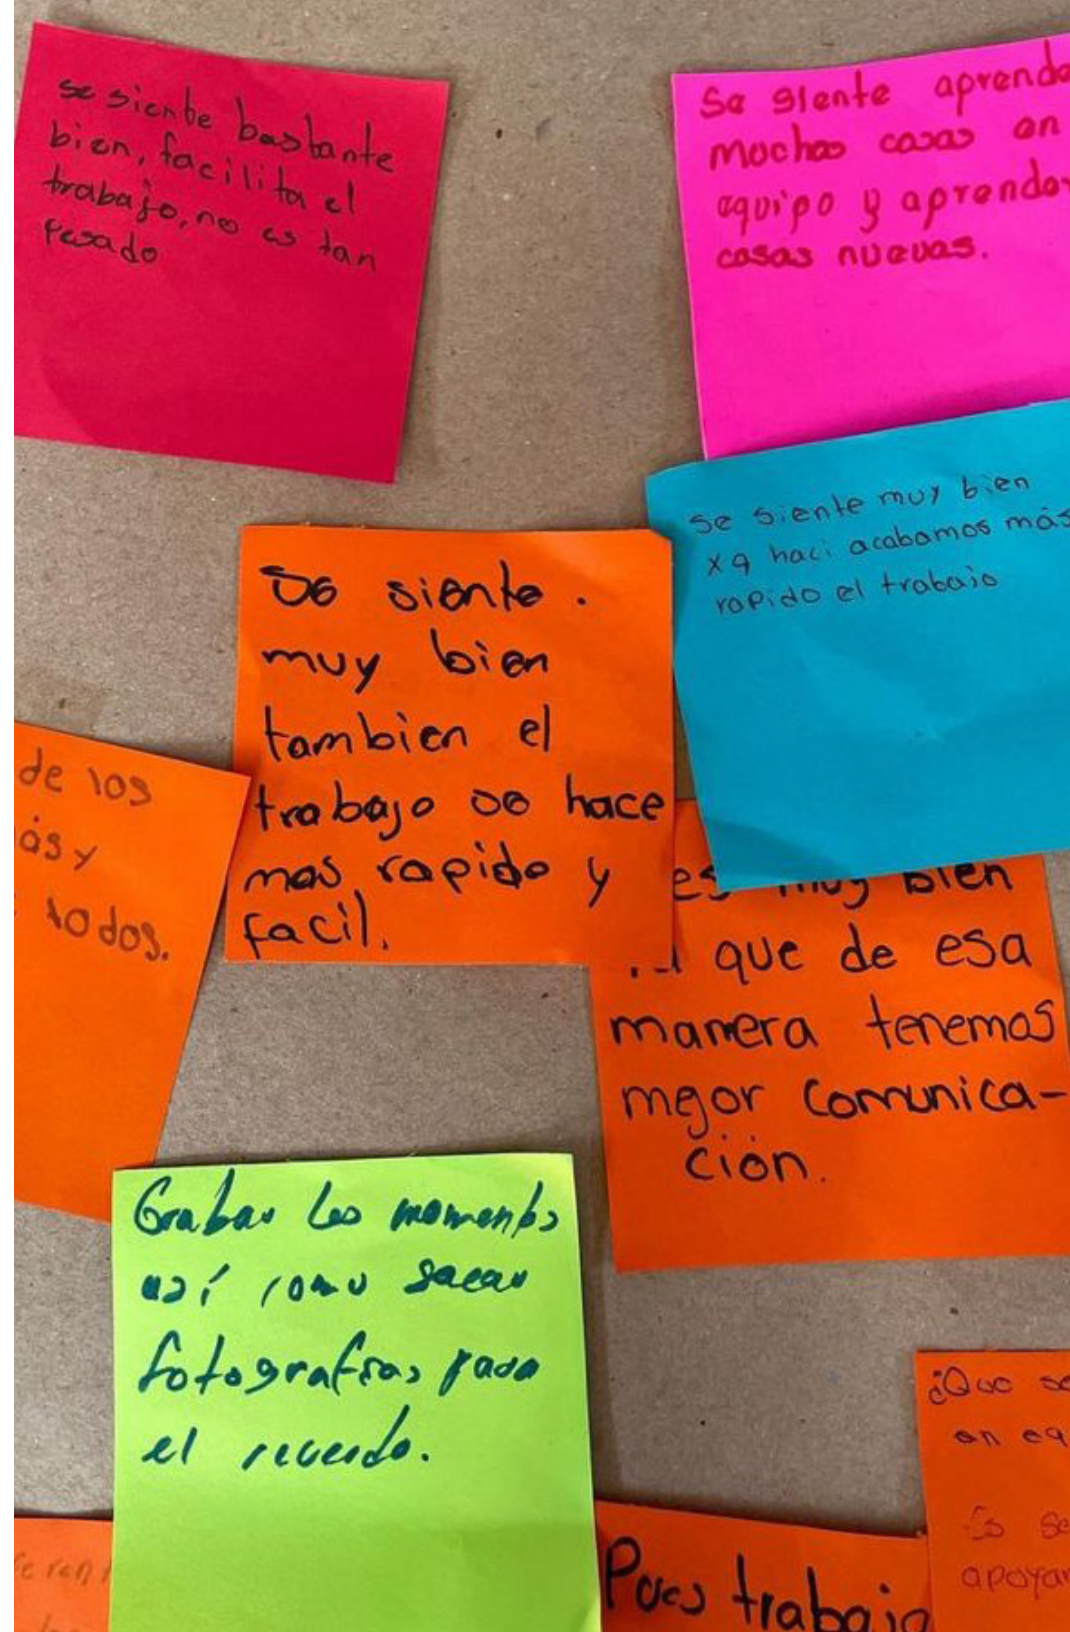 se siente bastante
bien, facilita el
trabajo, no es tan
pesado
Se siente aprende
mochas cosas en
equipo y aprender
cosas nuevas.
se siente muy bien
xq haci acabamos más
rapido el trabajo
Se siente.
muy bien
tambien el
trabajo se hace
mas rapido y
facil.
de los
ás y
todos.
es muy bien
que de esa
manera tenemos
mejor comunica-
ción.
Grabar los momentos
así como sacar
fotografias para
el recuerdo.
¿Que se
en eq
Es se
apoyar
Pues trabajo